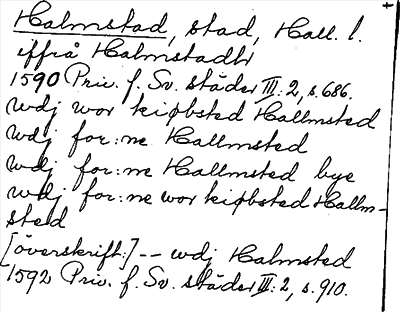 Halmstad, stad, Hall. l.
iffrå Halmstadh
1590 Priv. f. Sv. städer III:2, s. 686.
wdj wor kiøbsted Hallmsted
wdj for:ne Hallmsted
wdj for:ne Hallmsted bye
wdj for:ne wor kiøbsted Hallm-
sted
[överskrift:] -- wdj Halmsted
1592 Priv. f. Sv. städer III:2, s. 910.